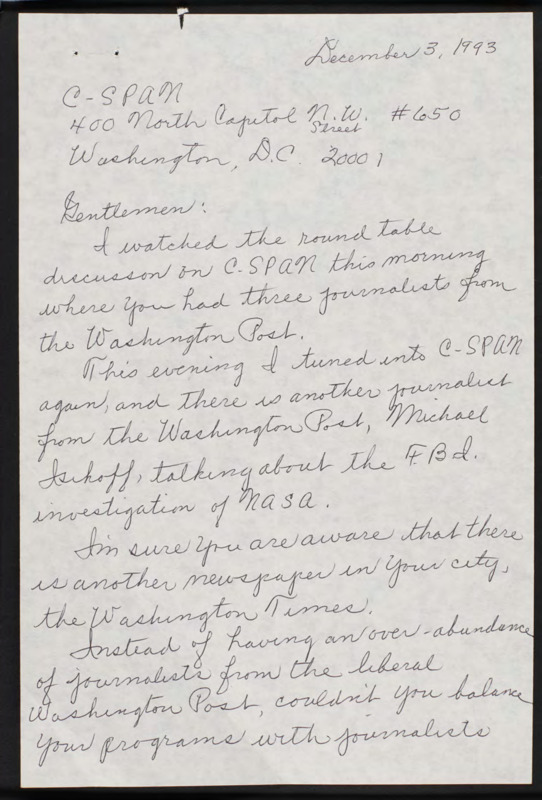 December 3, 1993
C-SPAN
400 North Capitol N.W. #650
Street
Washington, D.C. 20001
Gentlemen:
I watched the round table
discusson on C-SPAN this morning
where you had three journalists from
the Washington Post.
This evening I tuned into C-SPAN
again, and there is another journalist
from the Washington Post, Michael
Isikoff, talking about the F.B.I.
investigation of NASA.
I'm sure you are aware that there
is another newspaper in your city,
the Washington Times.
Instead of having an over-abundance
of journalists from the liberal
Washington Post, couldn't you balance
your programs with journalists